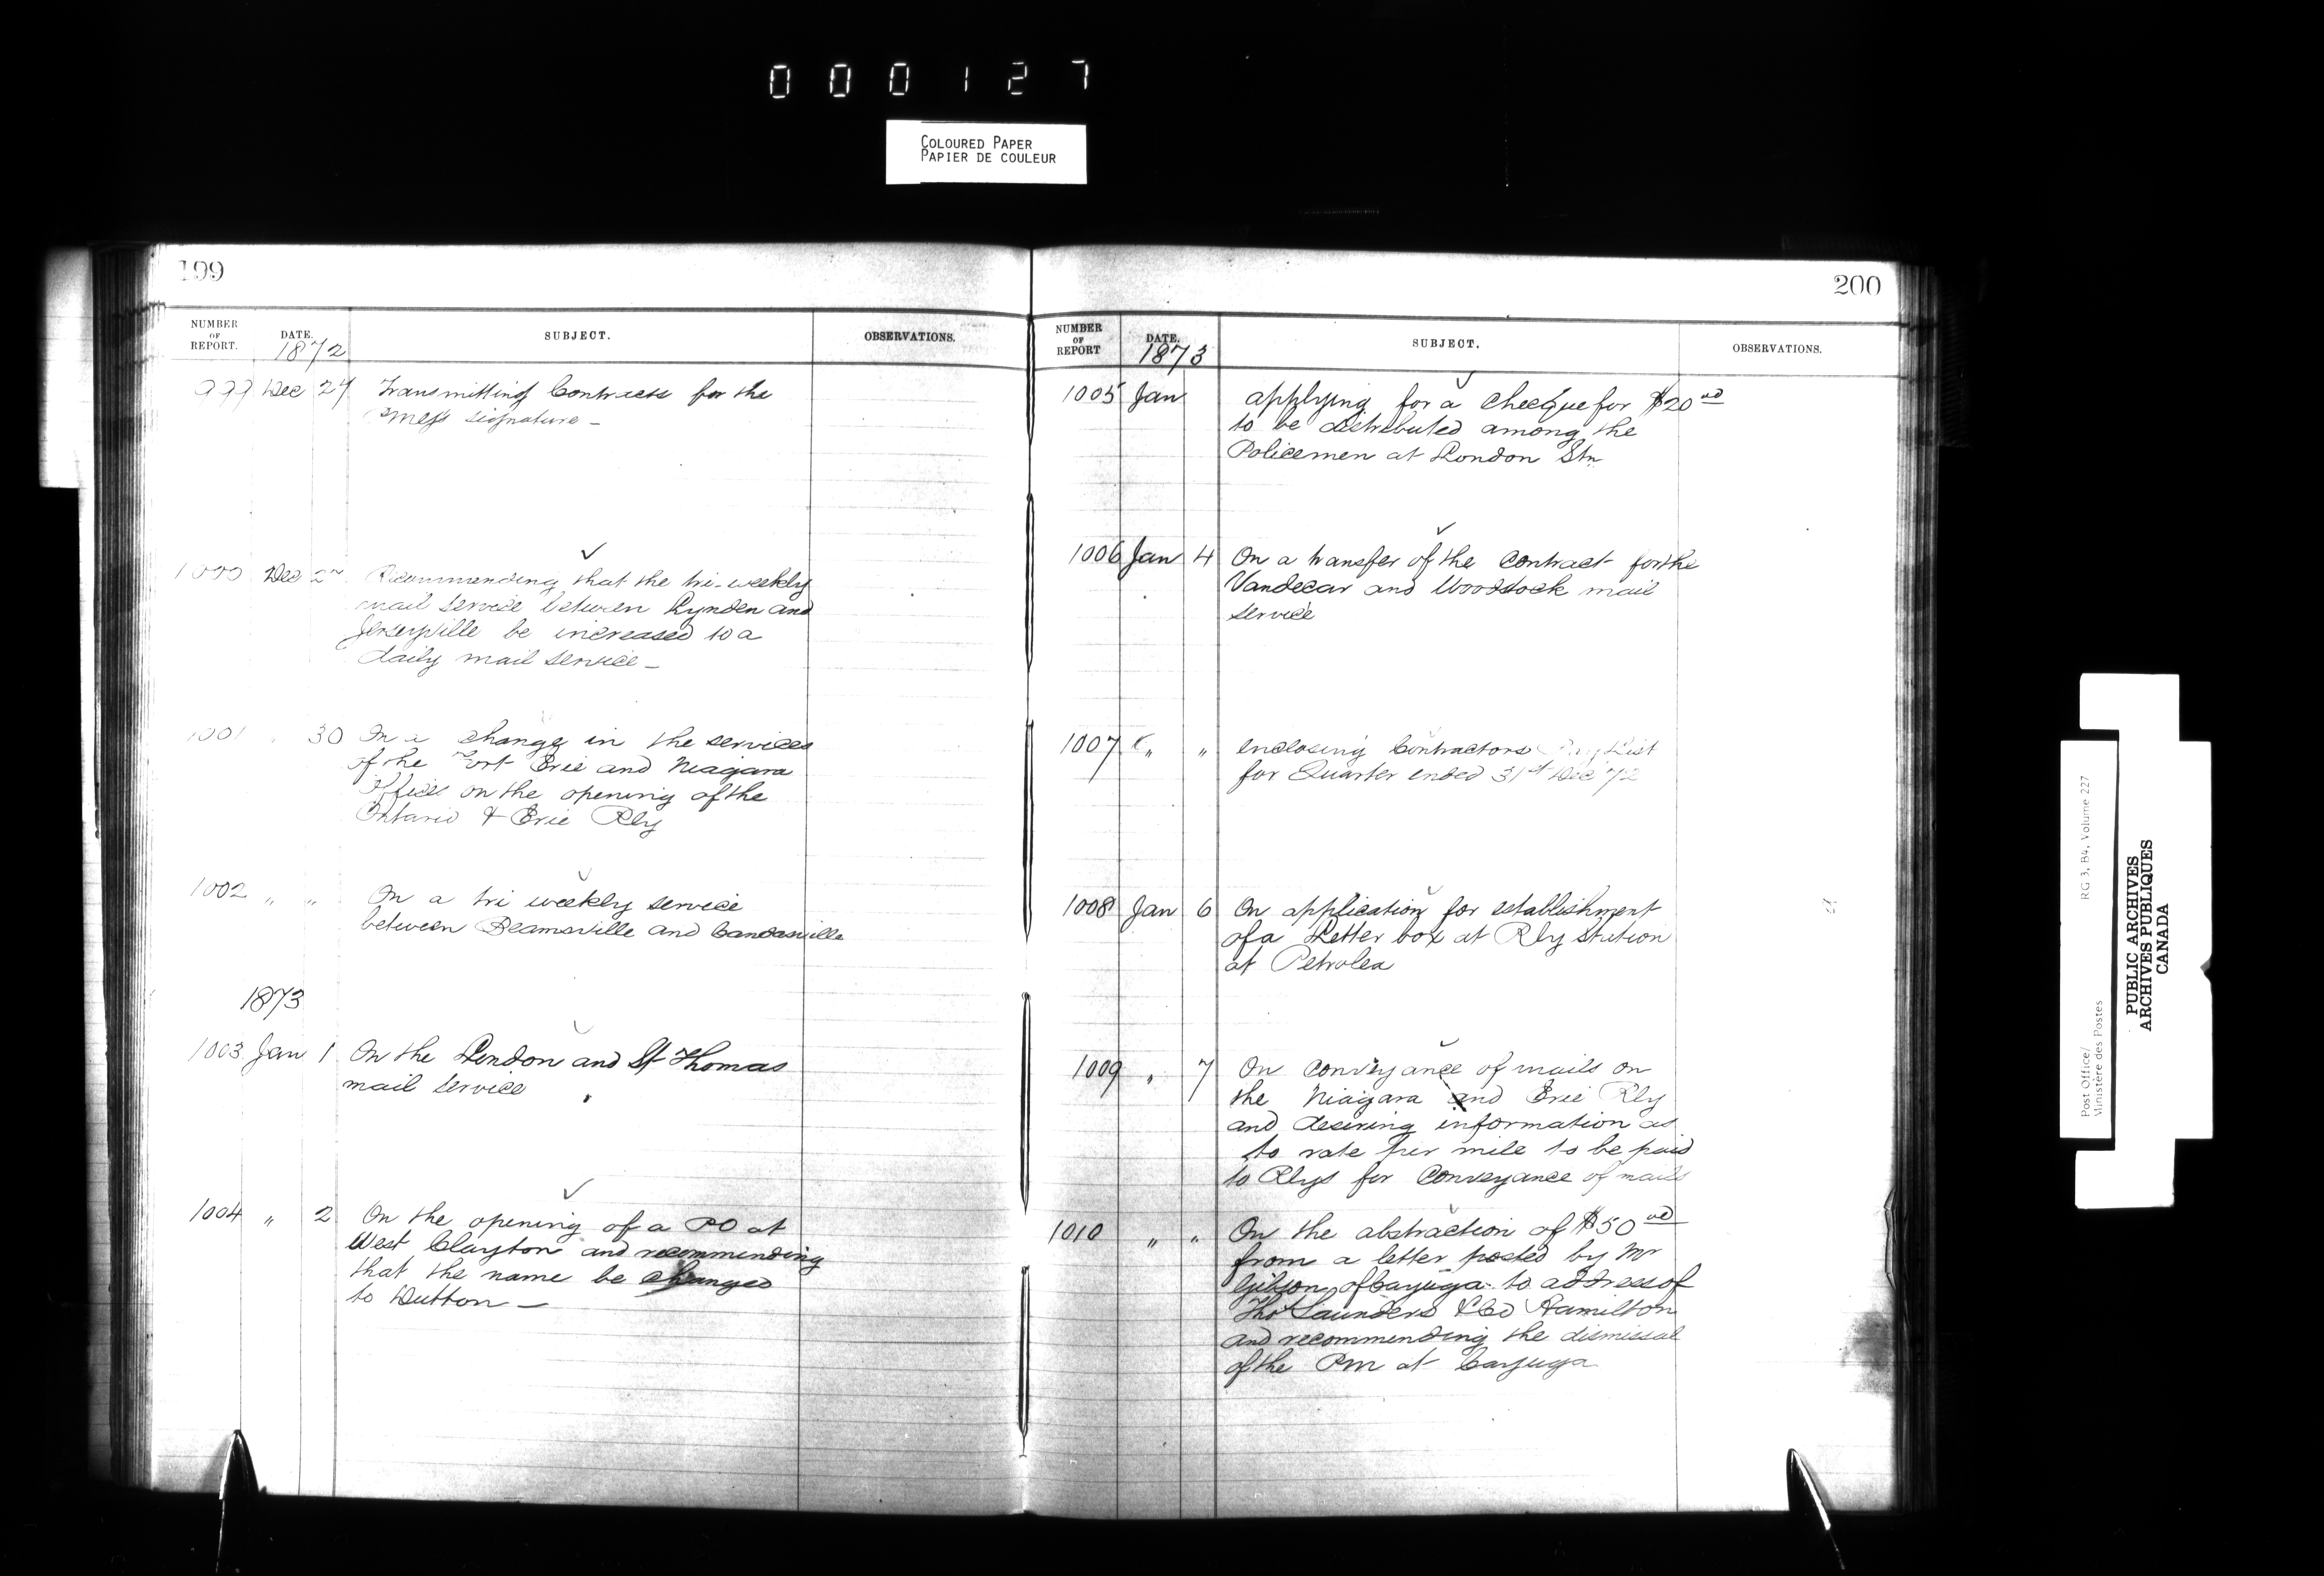 000127
COLOURED PAPER
PAPIER DE COULEUR
199
NUMBER OF REPORT. DATE. SUBJECT. OBSERVATIONS.
1872
999 Dec 24 Transmitting Contracts for the
signature –
1000 Dec Recommending that the tri-weekly
mail service between Lynden and
Jerseyville be increased to a
daily mail service –
1001 30 On a change in the services
of the Fort Erie and Niagara
Office on the opening of the
Ontario & Erie Rly
1002 " " On a tri weekly service
between Beamsville and
1873
1003 Jan 1 On the London and St Thomas
mail service
1004 " 2 On the opening of a PO at
West Clayton and recommending
that the name be changed
to Dutton –
200
NUMBER OF REPORT DATE. SUBJECT. OBSERVATIONS.
1873
1005 Jan applying for a Checque for $20
to be distributed among the
Policemen at London Stn
1006 Jan 4 On a transfer of the contract for the
Vandecar and Woodstock mail
service
1007 " " enclosing Contractors Pay List
for Quarter ended 31st Dec 72
1008 Jan 6 On application for establishment
of a Letter box at Rly station
at Petrolea
1009 " 7 On conveyance of mails on
the Niagara and Erie Rly
and desiring information as
to rate per mile to be paid
to Rlys for Conveyance of mails
1010 " " On the abstraction of $50
from a letter posted by Mr
Gibson of Cayuga to address of
Thos Saunders & Co Hamilton
and recommending the dismissal
of the Pm at Cayuga
Post Office/ RG 3, B4, Volume 227
Ministère des Postes
PUBLIC ARCHIVES
ARCHIVES PUBLIQUES
CANADA